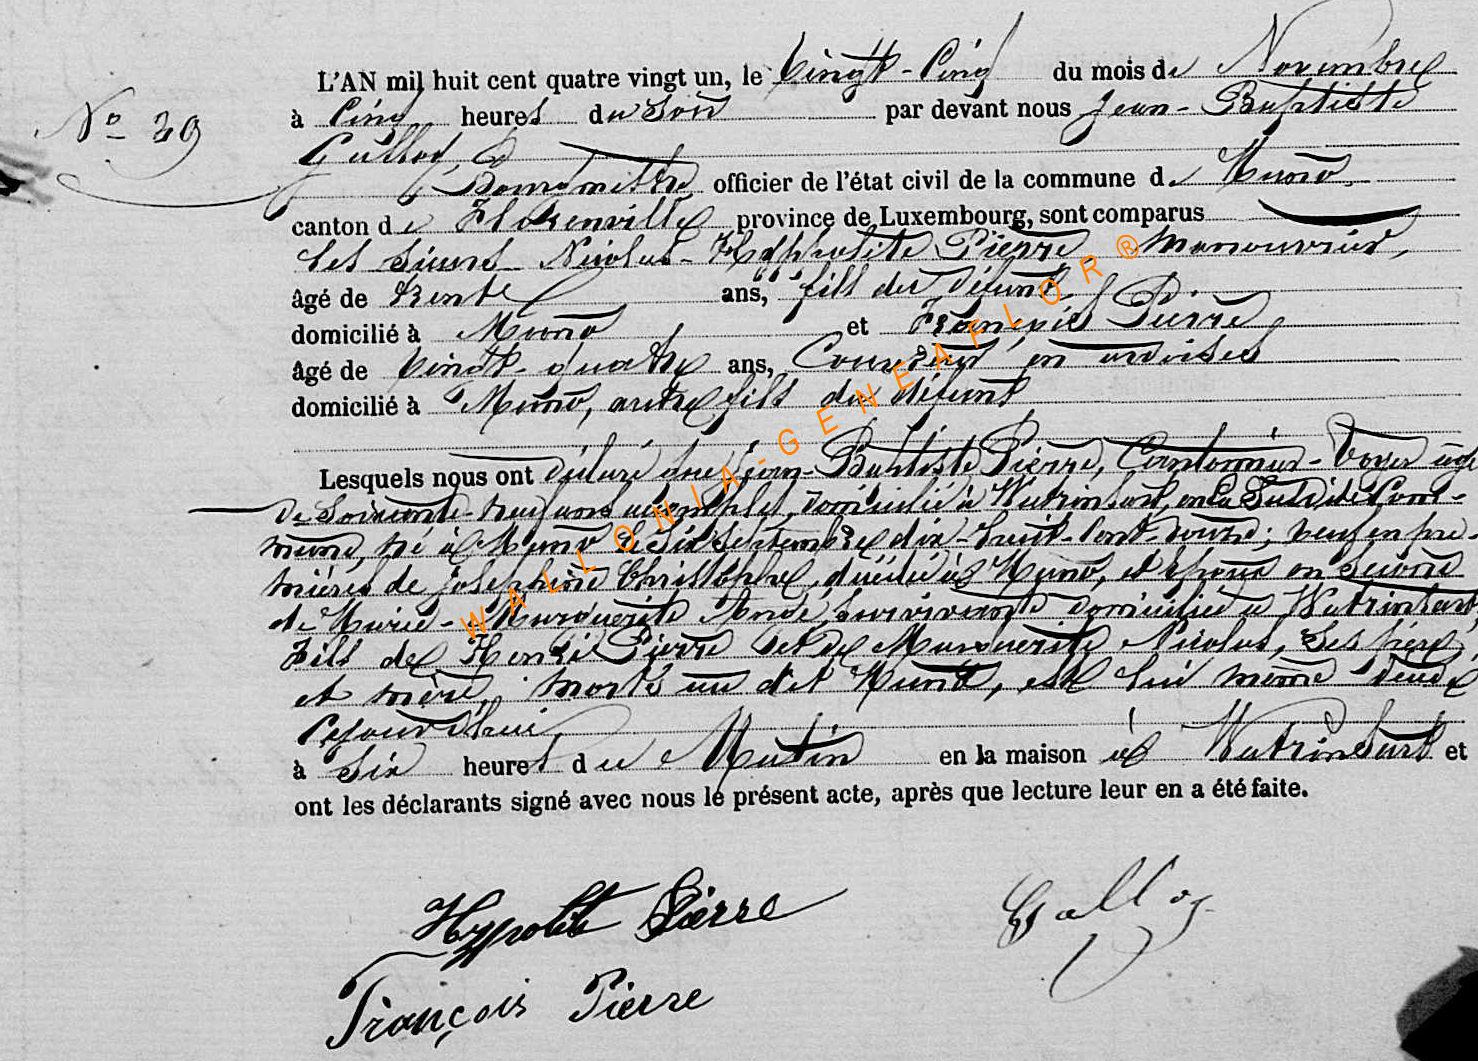 L'AN mil huit cent quatre vingt un, le Vingt-Cinq du mois de Novembre
N° 39
à Cinq heures du Soir par devant nous Jean-Baptiste
Bourgmestre officier de l'état civil de la commune de Muno
canton de Florenville province de Luxembourg, sont comparus
les Sieurs Nicolas-Hypholite Pierre Manouvrier,
âgé de trente ans, fils du défunt
domicilié à Muno et François Pierre
âgé de Vingt-quatre ans, Couvreur en ardoises
domicilié à Muno, autre fils du défunt
Lesquels nous ont déclaré que Jean-Baptiste Pierre, Cantonnier-Voyer âgé
de Soixante-neuf ans accomplis, domicilié à Watrinsart, en la Susdite Com-
mune, né à Muno le Six Septembre dix-huit-Cent-douze; veuf en pre-
mières de Joséphine Christophe, décédée à Muno, et époux en Second
de Marie-Marguerite André, survivante domiciliée à Watrinsart,
Fils de Henri Pierre et de Marguerite Nicolas, Ses père
et mère, morts au dit Muno, est lui même décédé
Cejourd'hui
à Six heures du Matin en la maison à Watrinsart et
ont les déclarants signé avec nous le présent acte, après que lecture leur en a été faite.
Hyppolite Pierre
François Pierre
WALLONIA-GENEAFLOR®